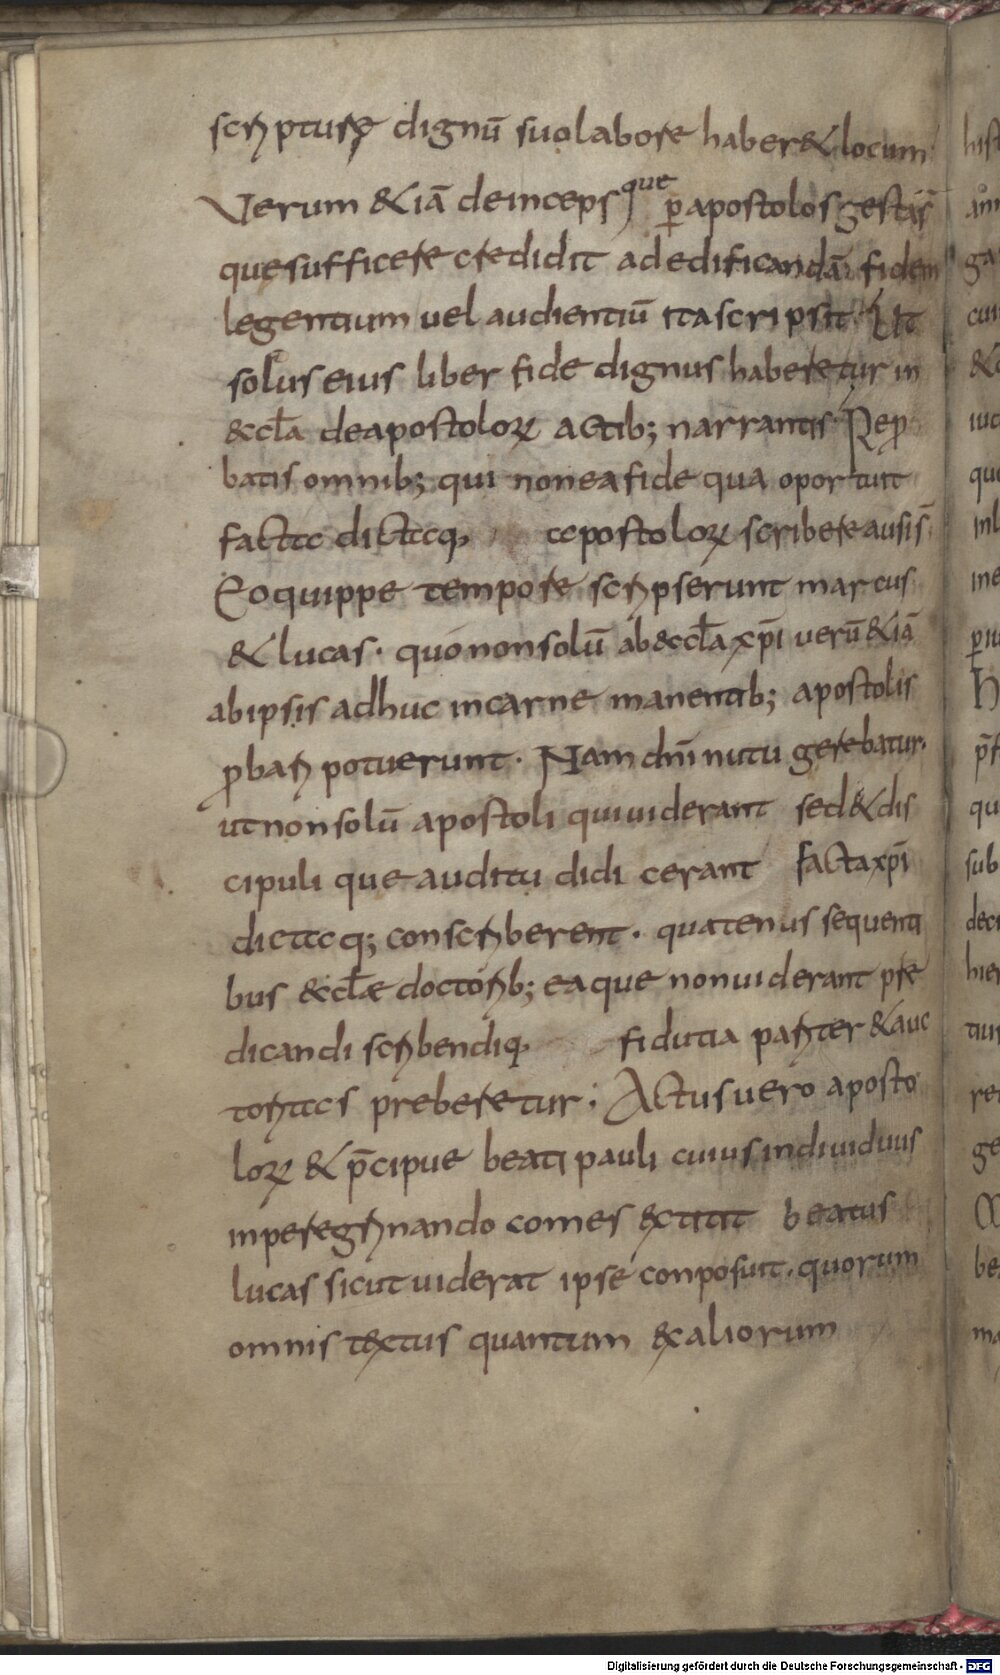 scripturę dignū suo labore haber& locum
Verum &iā deinceps que p̱ apostolos gesta s̄
quę sufficere credidit ad edificandā fidem
legentium vel audientiū ita scripsit Ut
solus eius liber fide dignus haberetur in
&cl̄a de apostoloꝝ actib; narrantis Rep̱
batis omnib; qui non ea fide qua oportuit
facta dictaq, apostoloꝝ scribere ausi s̄
Eo quippe tempore scripserunt marcus
& lucas · quo non solū ab &ccl̄a xp̄i verū &iā
ab ipsis adhuc in carne manentib; apostolis
ꝓbari potuerunt · Nam dn̄i nutu gerebatur ·
ut non solū apostoli qui viderant sed & dis
cipuli que auditu didicerant facta xp̄i
dictaq; conscriberent · quatenus sequenti
bus &ccl̄ae doctorib; ea que non viderant pre
dicandi scribendiq, fidutia pariter & auc
toritas preberetur; Actus vero aposto
loꝝ & p̄cipue beati pauli cuius individuus
in peregrinando comes extitit beatus
lucas sicut viderat ipse conposuit · quorum
omnis textus quantum ex aliorum
Digitalisierung gefördert durch die Deutsche Forschungsgemeinschaft - DFG